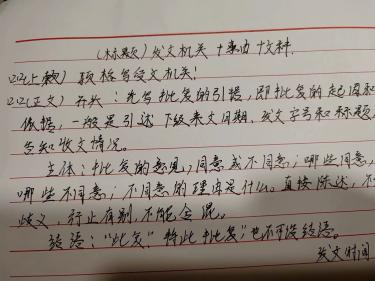 （标题）发文机关＋事由＋文种.
（上款）顶格写受文机关:
（正文）开头：先写批复的引据，即批复的起因和
依据，一般是引述下级来文日期、发文字号和标题，
告知收文情况。
主体：批复的意见，同意或不同意；哪些同意，
哪些不同意；不同意的理由是什么。直接陈述，不
歧义，行止有别，不能含混。
结语："此复""特此批复"，也可没结语。
发文时间